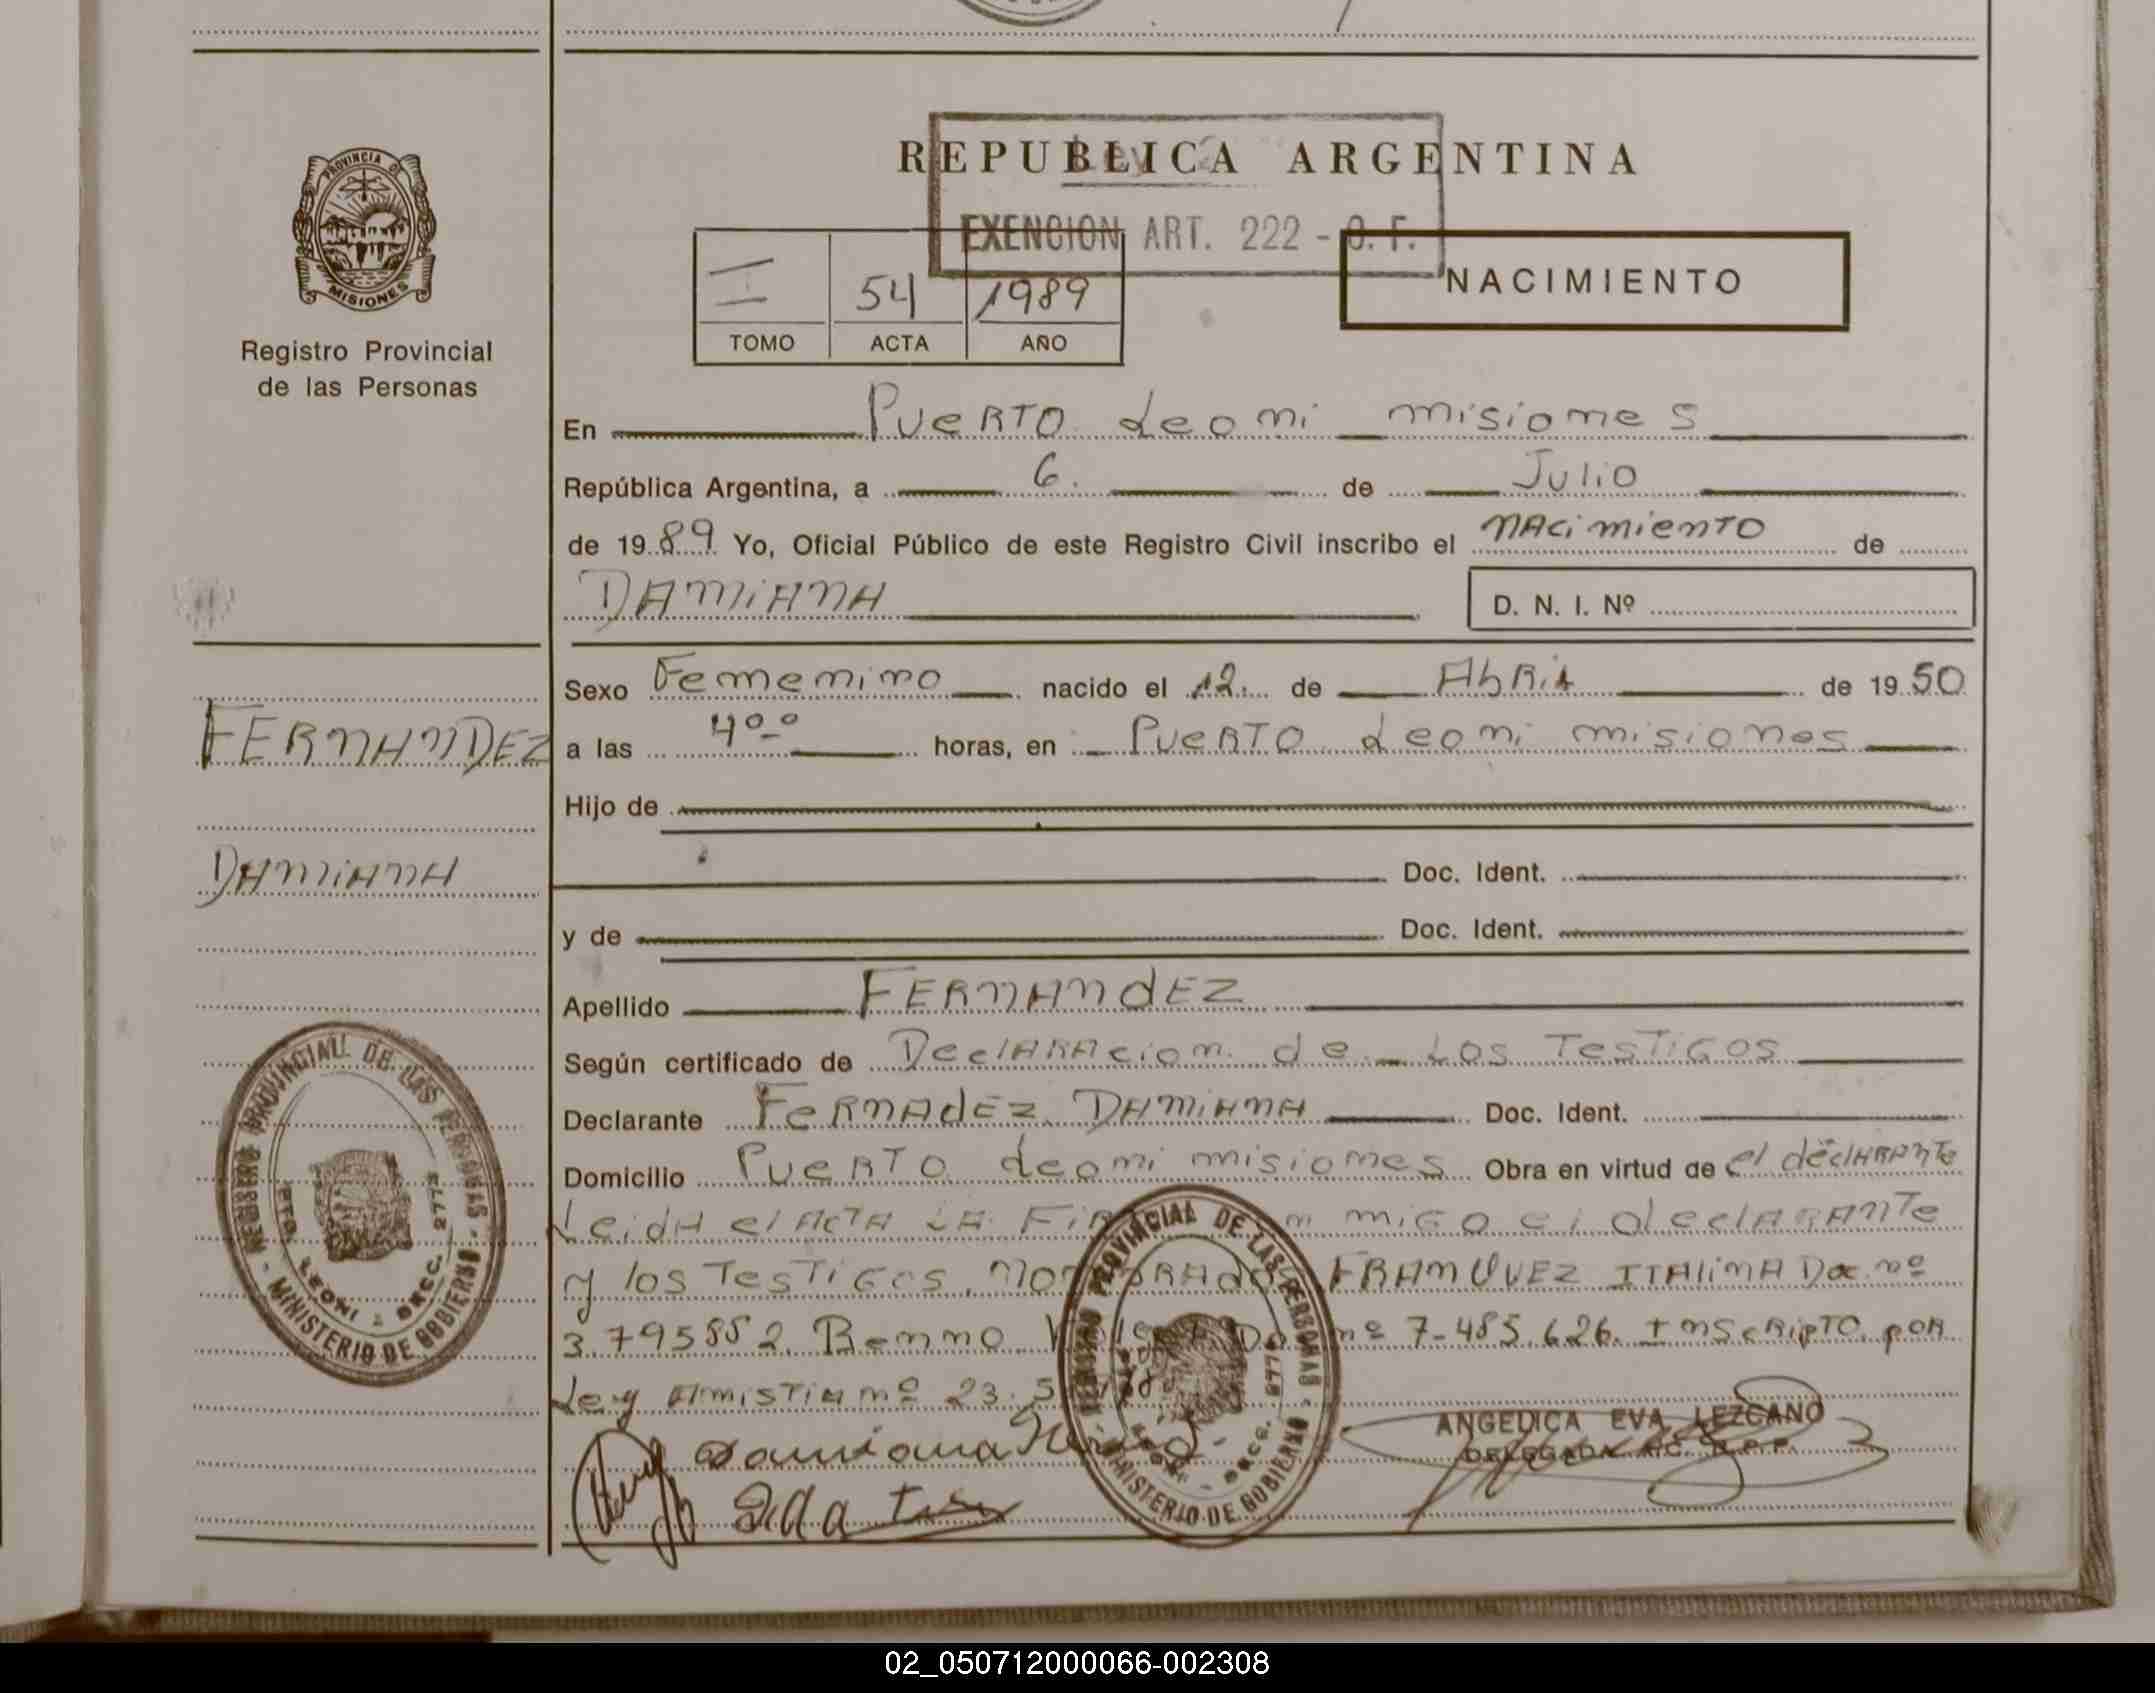 REPUBLICA ARGENTINA
EXENCION ART. 222 - C. F.
PROVINCIA DE
MISIONES
Registro Provincial
de las Personas
I 54 1989
TOMO ACTA AÑO
NACIMIENTO
En Puerto Leoni misiones
República Argentina, a 6. de Julio
de 1989 Yo, Oficial Público de este Registro Civil inscribo el nacimiento de
DAMIANA D. N. I. Nº
Sexo Femenino nacido el 12 de Abril de 1950
FERNANDEZ
a las 4ºº horas, en Puerto Leoni misiones
Hijo de
DAMIANA
Doc. Ident.
y de Doc. Ident.
Apellido FERNANdEZ
Según certificado de Declaracion de los Testigos
Declarante FernadEz DAMiANA Doc. Ident.
Domicilio Puerto Leoni misiones Obra en virtud de el declarante
Leida el Acta la m migo el declarante
y los Testigos FRANUVEZ ITALINA Doc. nº
3.795852 Benno nº 7-485.626. Inscripto por
Ley Amistia nº 23.
Damiana
ANGELICA EVA LEZCANO
DELEGADA R.P.P.
REGISTRO PROVINCIAL DE LAS PERSONAS
PTO. LEONI - DECC. 2773
- MINISTERIO DE GOBIERNO -
REGISTRO PROVINCIAL DE LAS PERSONAS
- MINISTERIO DE GOBIERNO -
02_050712000066-002308